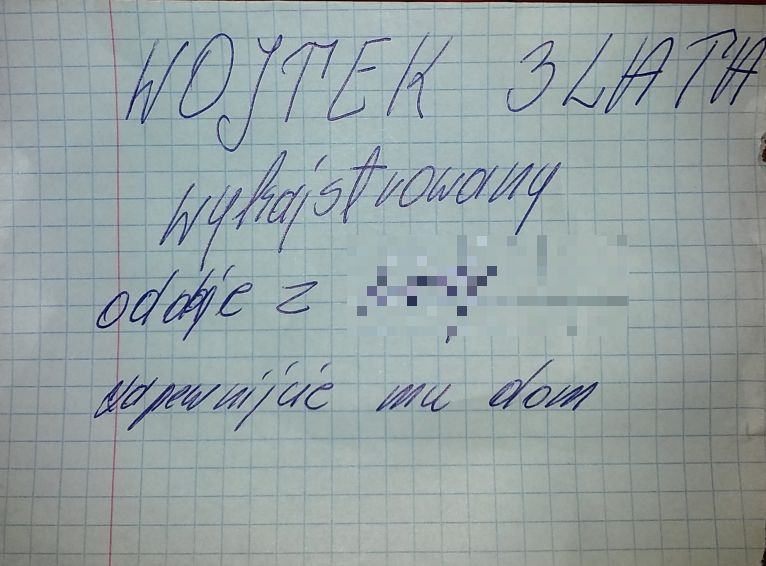 WOJTEK 3 LATA
wykajstrowany
oddaje z
zapewnijcie mu dom